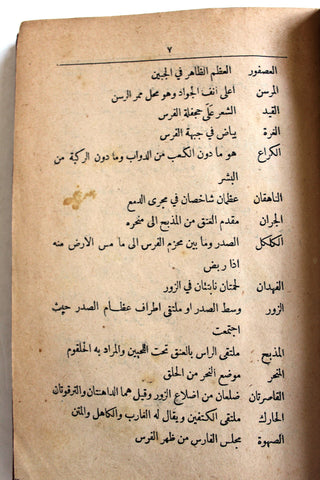 ٧
العصفور العظم الظاهر في الجبين
المرسن اعلى انف الجواد وهو محل ممر الرسن
القيد الشعر على جحفلة الفرس
الغرة بياض في جبهة الفرس
الكراع هو ما دون الكعب من الدواب وما دون الركبة من
البشر
الناهقان عظمان شاخصان في مجرى الدمع
الجران مقدم العنق من المذبح الى منحره
الكلكل الصدر وما بين محزم الفرس الى ما مس الارض منه
اذا ربض
الفهدان لحمتان ناتئتان في الزور
الزور وسط الصدر او ملتقى اطراف عظام الصدر حيث
اجتمعت
المذبح ملتقى الراس بالعنق تحت اللحيين والمراد به الحلقوم
المنحر موضع النحر من الحلق
القاصرتان ضلعان من اضلاع الزور وقيل هما الداهنتان والترقوتان
الحارك ملتقى الكتفين ويقال له الغارب والكاهل والمتن
الصهوة مجلس الفارس من ظهر الفرس